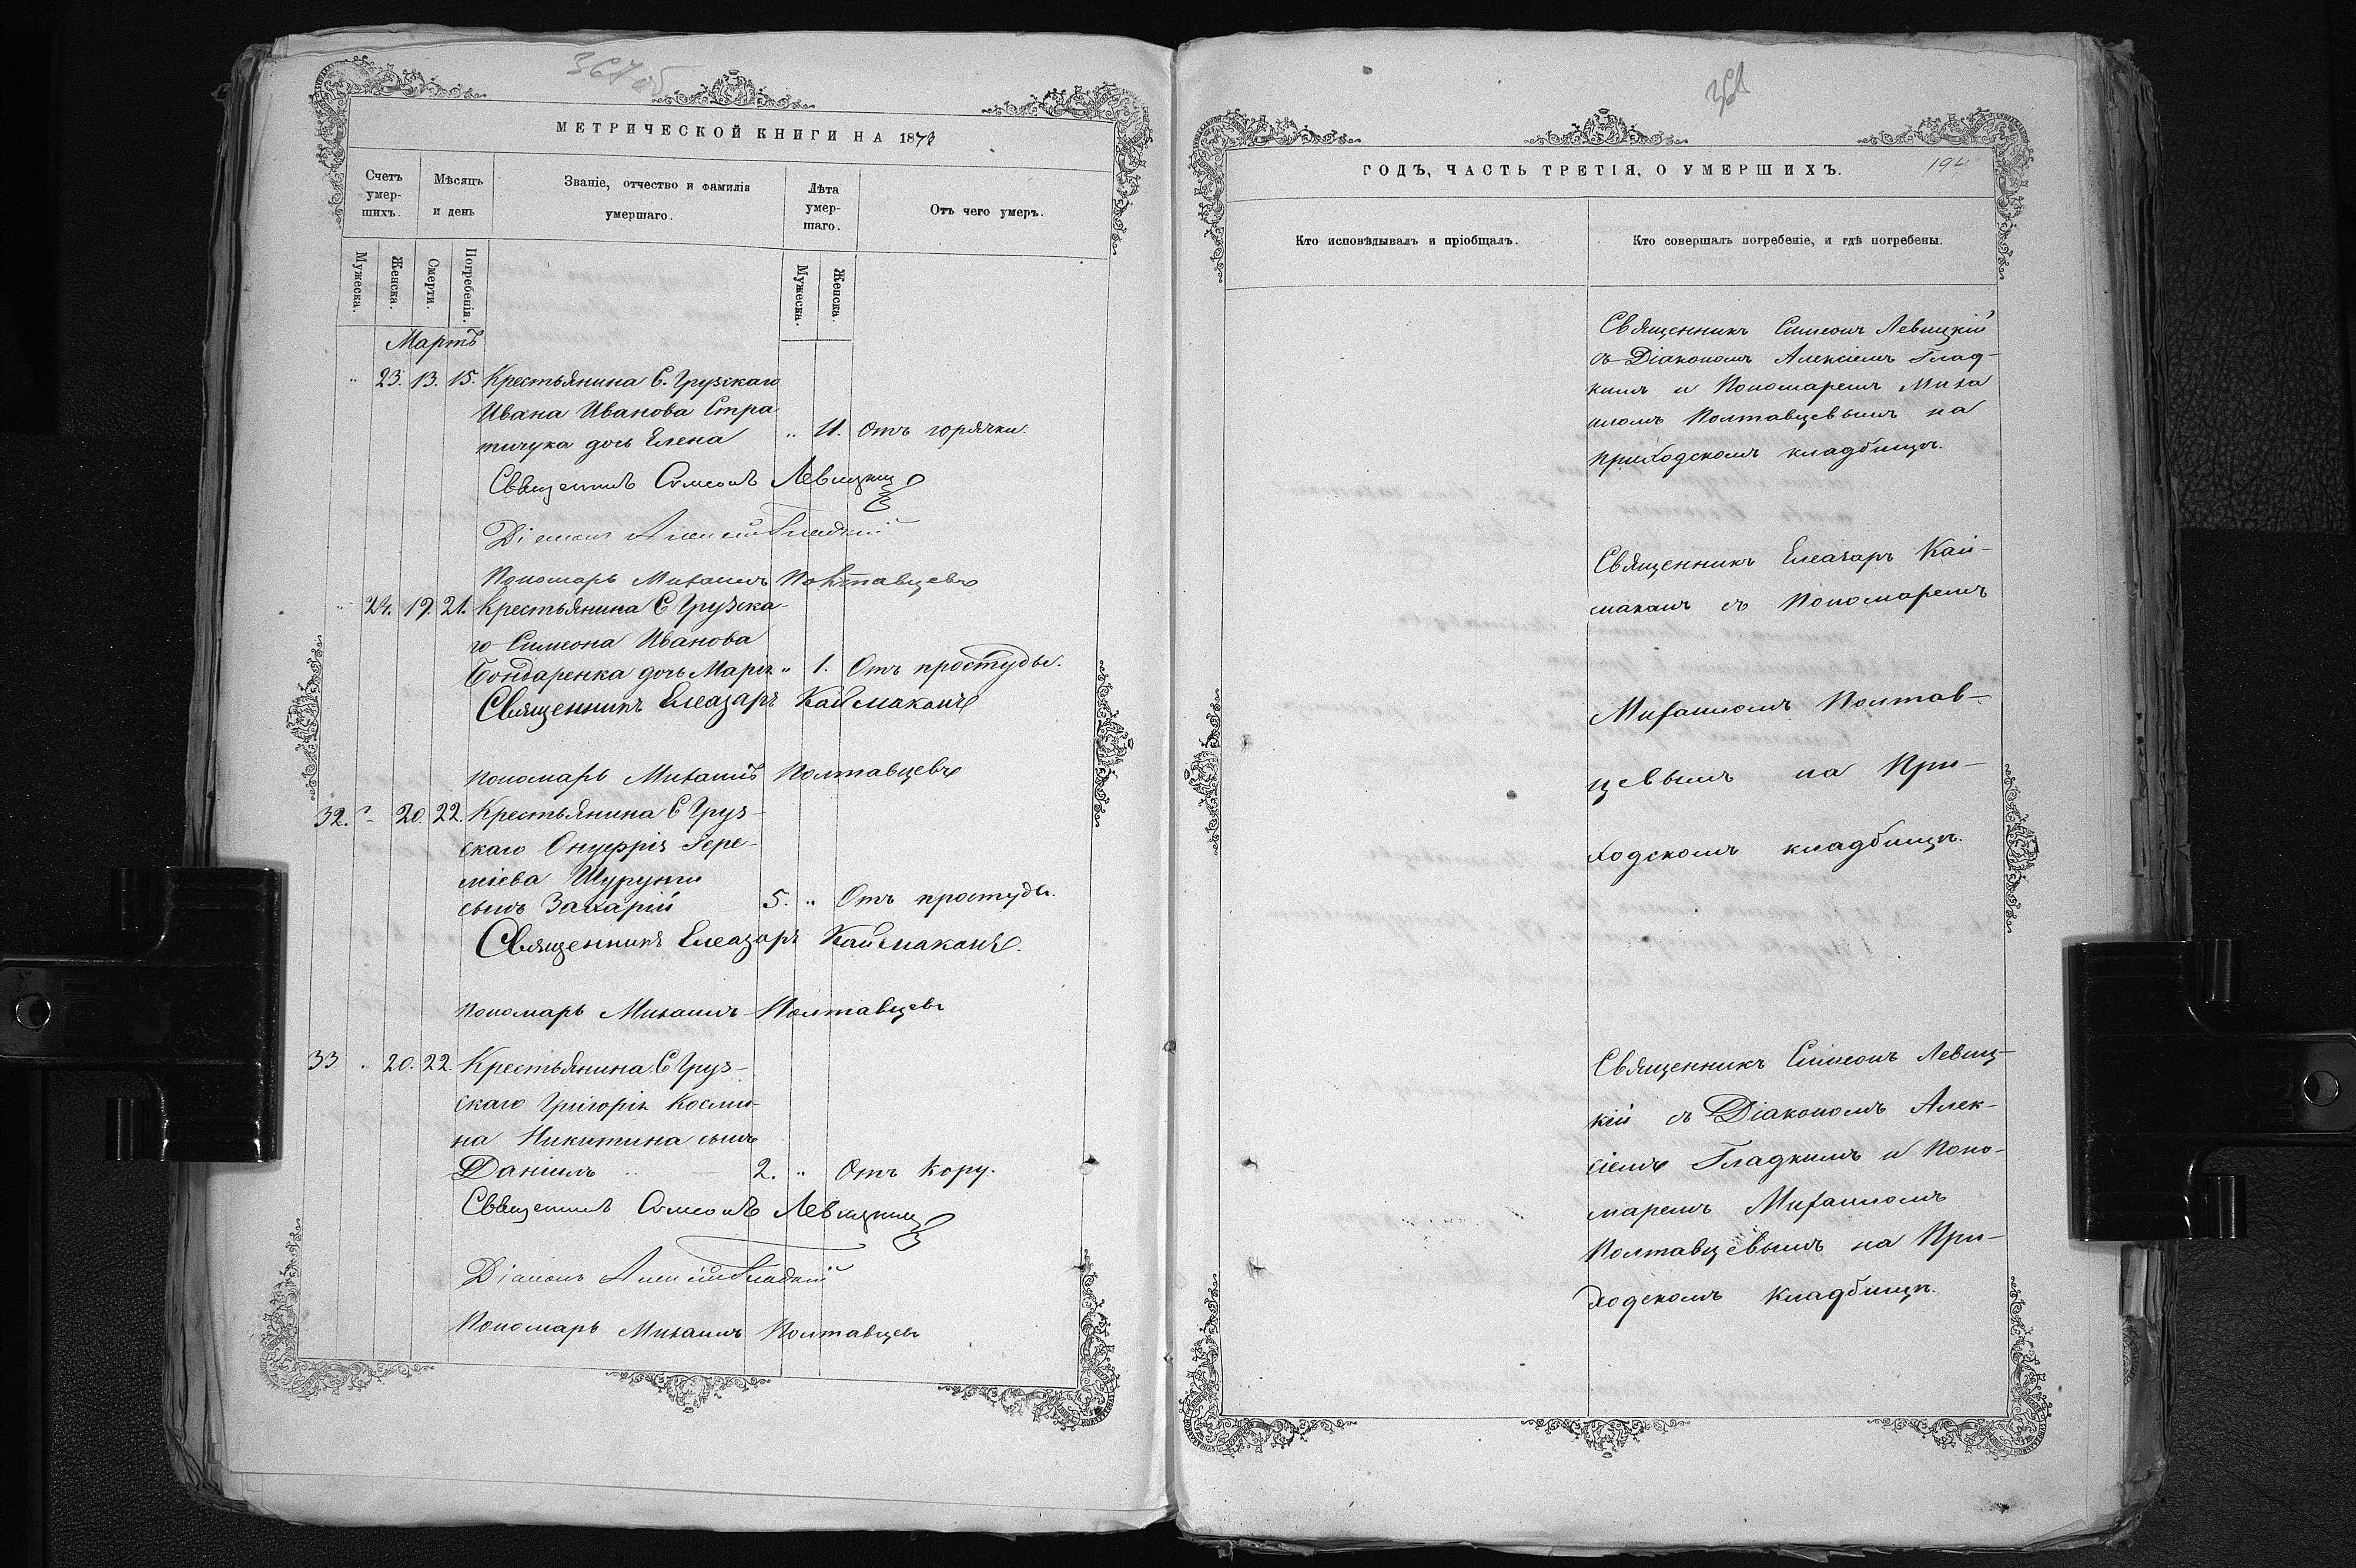 367 об
МЕТРИЧЕСКОЙ КНИГИ НА 187
Счетъ умер-шихъ.
Мѣсяцъ и день
Званіе, отчество и фамилія умершаго.
Лѣта умер-шаго.
Отъ чего умеръ.
Мужеска.
Женска.
Смерти.
Погребенія.
Мужеска.
Женска.
Мартъ
" 23. 13. 15. Крестьянина С. Грузскаго
Ивана Иванова Стра
тичука дочь Елена " 11. Отъ горячки.
Священникъ Симеонъ Левицкій
Діаконъ Алексій Гладкій
Пономарь Михаилъ Полтавцевъ
" 24. 19. 21. Крестьянина С Грузска-
го Симеона Иванова
Бондаренка дочь Марія " 1. Отъ простуды.
Священникъ Елеазаръ Каймаканъ
Пономарь Михаилъ Полтавцевъ
32. 20. 22. Крестьянина С Груз-
скаго Онуфрія Іере-
міева Шурупи
сынъ Захарій 5. " Отъ простуды.
Священникъ Елеазаръ Каймаканъ.
Пономарь Михаилъ Полтавцевъ
33. 20. 22. Крестьянина С Груз-
скаго Григорія Косми-
на Никитина сынъ
Даніилъ 2. " Отъ кору.
Священникъ Симеонъ Левицкій
Діаконъ Алексій Гладкій
Пономарь Михаилъ Полтавцевъ
ГОДЪ, ЧАСТЬ ТРЕТІЯ, О УМЕРШИХЪ.
Кто исповѣдывалъ и пріобщалъ.
Кто совершалъ погребеніе, и гдѣ погребены.
Священникъ Симеонъ Левицкій
съ Діакономъ Алексіемъ Глад-
кимъ и Пономаремъ Миха
иломъ Полтавцевымъ на
приходскомъ кладбищѣ.
Священникъ Елеазаръ Кай-
маканъ съ Пономаремъ
Михаиломъ Полтав-
цевымъ на При-
ходскомъ кладбищѣ.
Священникъ Симеонъ Левиц-
кій съ Діакономъ Алек-
сіемъ Гладкимъ и Поно-
маремъ Михаиломъ
Полтавцевымъ на При-
ходскомъ кладбищѣ.